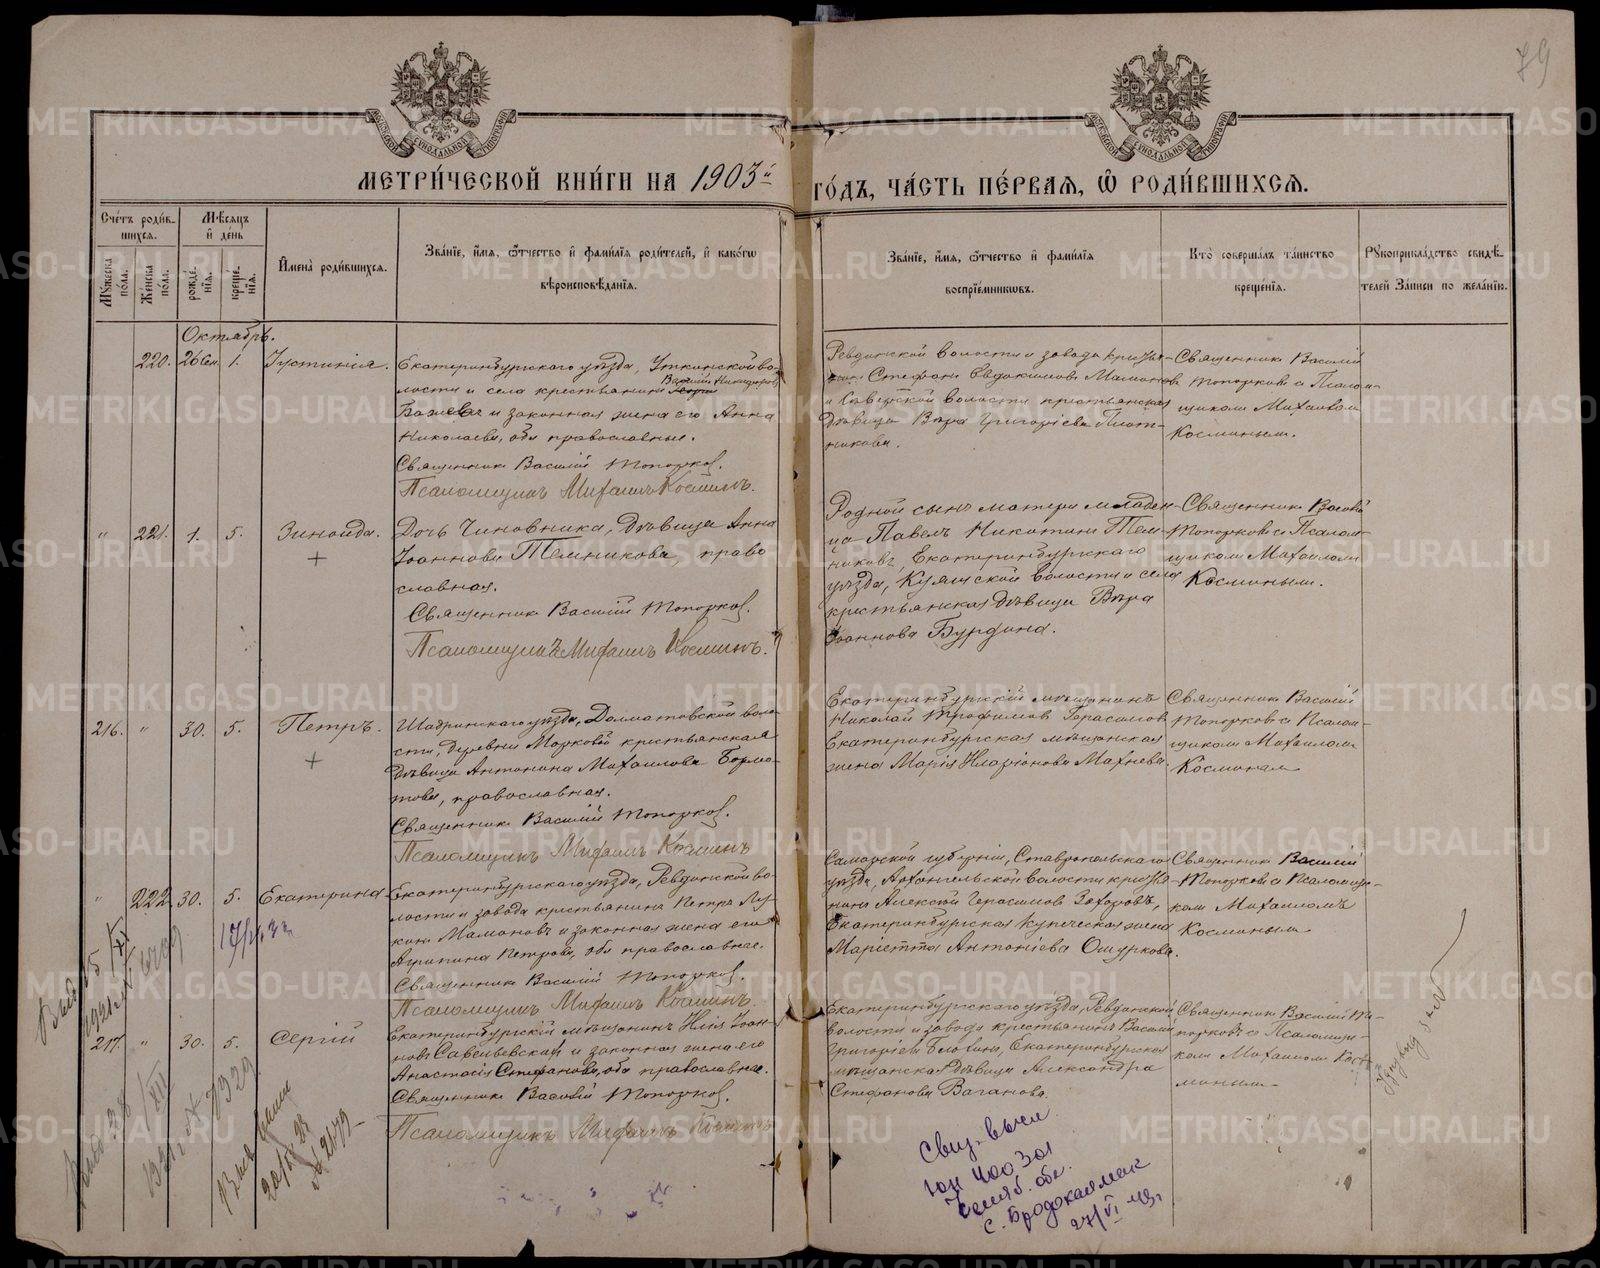 79
МЕТРИ́ЧЕСКОЙ КНИ́ГИ НА 1903й ГО́ДЪ, ЧА́СТЬ ПЕ́РВАЯ, Ѿ РОДИ́ВШИХСЯ.
Сче́тъ роди́в-
шихся.
Мꙋжеска по́ла.
Же́нска по́ла.
Мѣ́сяцъ
и҆ де́нь
рожде́нїя.
креще́нїя.
И҆мена̀ роди́вшихся.
Зва́нїе, и҆́мя, ѻ҆́тчество и҆ фами́лїя роди́телей, и҆ како́гѡ
вѣроисповѣ́данїя.
Зва́нїе, и҆́мя, ѻ҆́тчество и҆ фами́лїя
воспрїе́мникѡвъ.
Кто̀ соверша́лъ та́инство
креще́нїя.
Рꙋкоприкла́дство свидѣ́-
телей за́писи по жела́нїю.
Октябрь.
220. 26 Сен. 1. Іустинія.
Екатеринбургскаго уѣзда, Уткинской во-
лости и села крестьянинъ Василій Никифоровъ
и законная жена его Анна
Николаева, оба православные.
Священникъ Василій Топорковъ.
Псаломщикъ Михаилъ Косминъ.
Ревдинской волости и завода крестья-
нинъ Стефанъ Евдокимовъ Мамоновъ
и волости крестьянская
дѣвица Вѣра Григоріева Плот-
никова.
Священникъ Василій
Топорковъ с Псалом-
щикомъ Михаиломъ
Косминымъ.
" 221. 1. 5. Зинаида.
+
Дочь Чиновника, дѣвица Анна
Іоаннова Темникова, право-
славная.
Священникъ Василій Топорковъ.
Псаломщикъ Михаилъ Косминъ.
Родной сынъ матери младен-
ца Павелъ Никитинъ Тем-
никовъ, Екатеринбургскаго
уѣзда, волости и села
крестьянская дѣвица Вѣра
Іоаннова Бурдина.
Священникъ Василій
Топорковъ с Псалом-
щикомъ Михаиломъ
Косминымъ.
216. " 30. 5. Петръ.
+
Шадринскаго уѣзда, Далматовской воло-
сти, деревни Марковой крестьянская
дѣвица Антонина Михаилова Борма-
това, православная.
Священникъ Василій Топорковъ.
Псаломщикъ Михаилъ Косминъ
Екатеринбургскій мѣщанинъ
Николай Трофимовъ Герасимовъ
Екатеринбургская мѣщанская
жена Марія Иларіонова Махнева.
Священникъ Василій
Топорковъ с Псалом-
щикомъ Михаиломъ
Косминым
" 222. 30. 5. Екатерина
Екатеринбургскаго уѣзда, Ревдинской во-
лости и завода крестьянинъ Петръ Лу-
кинъ Мамоновъ и законная жена его
Агрипина Петрова, оба православные.
Священникъ Василій Топорковъ.
Псаломщикъ Михаилъ Косминъ.
Самарской губерніи, Ставропольскаго
уѣзда, Архангельской волости крестья-
нинъ Алексій Герасимовъ Захаровъ,
Екатеринбургская купеческая жена
Маріетта Антоніева Ошуркова.
Священникъ Василій
Топорковъ с Псаломщи-
комъ Михаиломъ
Косминымъ
217. " 30. 5. Сергій
Екатеринбургскій мѣщанинъ Илія Іоан-
новъ Савельевскай и законная жена его
Анастасія Стефанова, оба православные.
Священникъ Василій Топорковъ.
Псаломщикъ Михаилъ Косминъ
Екатеринбургскаго уѣзда, Ревдинской
волости и завода крестьянинъ Василій
Григоріевъ Екатеринбургская
мѣщанская дѣвица Александра
Стефанова Ваганова.
Священникъ Василій То-
порковъ с Псаломщи-
комъ Михаиломъ Кос-
минымъ
1921
7329
№ 2679
400301
Челяб. обл.
с. Бродокалмак
27/VI
METRIKI.GASO-URAL.RU